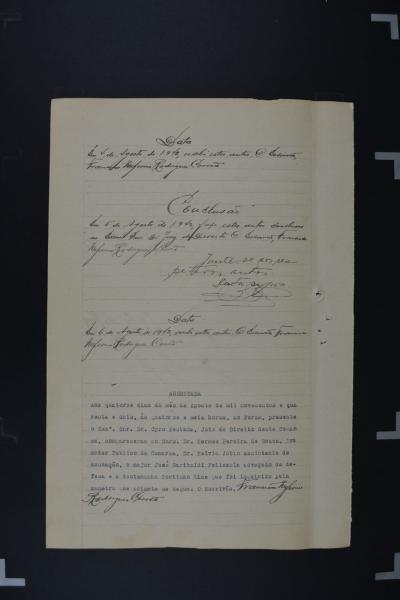 Data
Em 5 de Agosto de 1942, recebi estes autos. O Escrivão,
Francisco Rodrigues Corrêa
Conclusão
Em 5 de Agosto de 1942 faço estes autos conclusos
ao Exmo. Snr. Dr. Juiz de Direito. O Escrivão, Francisco
Rodrigues Corrêa
Junte-se aos
autos
Data supra
Data
Em 6 de Agosto de 1942, recebi estes autos. O Escrivão, Francisco
Rodrigues Corrêa
ASSENTADA
Aos quatorze dias do mês de Agosto de mil novecentos e qua
renta e dois, às quatorze e meia horas, no Forum, presente
o Exmº. Snr. Dr. Cyro Pestana, Juiz de Direito desta Comar
ca, compareceram os Snrs. Dr. Hermes Pereira de Souza, Pro
motor Publico da Comarca, Dr. Helvio Jobim assistente da
acusação, o major José Garibaldi Felizzola advogado da de-
fesa e a testemunha Fortinho Lins que foi inquirida pela
maneira que adiante se segue. O Escrivão, Francisco
Rodrigues Corrêa